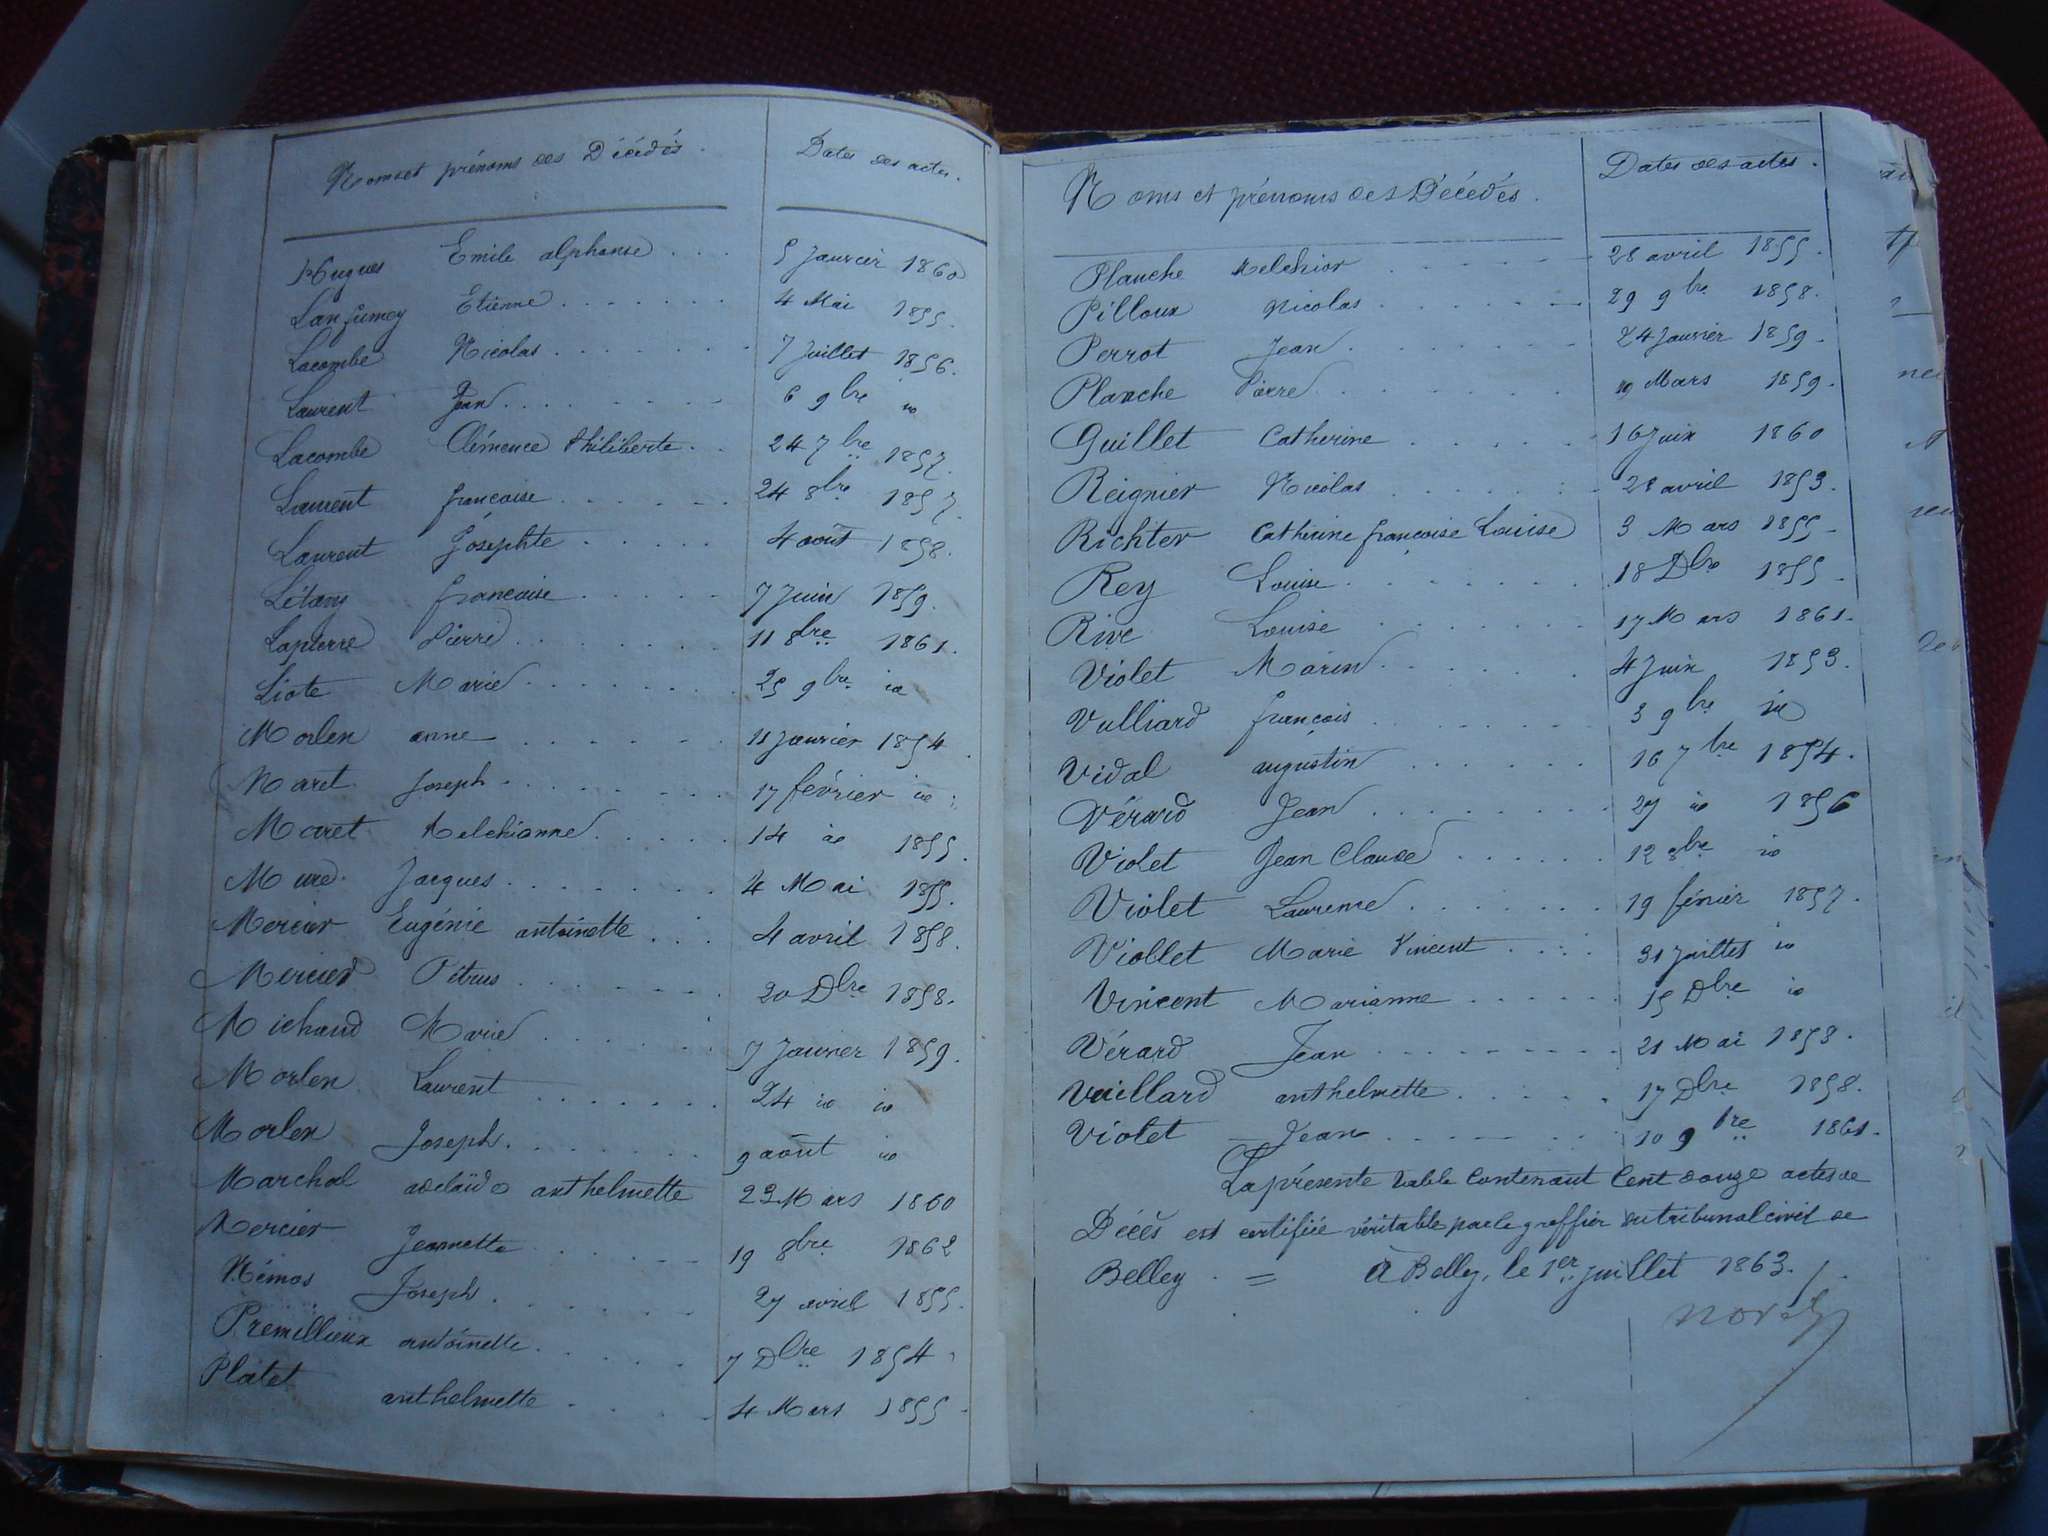 Noms et prénoms des Décédés. Dates des actes.
Hugues Emile alphonse . . . 5 Janvier 1860
Lanfumey Etienne . . . . . . . 4 Mai 1855.
Lacombe Nicolas . . . . . . . 7 Juillet 1856.
Laurent Jean . . . . . . . . 6 9bre id
Lacombe Clémence Philiberte . . 24 7bre 1857.
Laurent françoise . . . . . . 24 8bre 1857.
Laurent Josephte . . . . . 4 août 1858.
Létang françoise . . . . . 7 Juin 1859.
Lapierre Pierre . . . . . . . 11 8bre 1861.
Liote Marie . . . . . . . . 25 9bre id
Morlen anne . . . . . . . 11 Janvier 1854.
Maret Joseph . . . . . . . . 17 février id
Maret Melchionne . . . . . 14 id 1855.
Mure. Jacques . . . . . . . 4 Mai 1855.
Mercier Eugénie antoinette . . . 4 avril 1858.
Mercier Pétrus . . . . . . . 20 Dbre 1858.
Michaud Marie . . . . . . 7 Janvier 1859.
Morlen Laurent . . . . . . . 24 id id
Morlen Joseph. . . . . . . . 9 août id
Marchal adelaïde anthelmette 23 Mars 1860
Mercier Jeannette . . . . . 19 8bre 1862
Némos Joseph . . . . . . . 27 avril 1855.
Premillieux antoinette . . . . . . 7 Dbre 1854.
Platet anthelmette . . . . . 4 Mars 1855.
Noms et prénoms des Décédés. Dates des actes.
Planche Melchior . . . . . . . 28 avril 1855.
Pilloux Nicolas . . . . . . . 29 9bre 1858.
Perrot Jean . . . . . . . . 24 Janvier 1859.
Planche Pierre . . . . . . . . 10 Mars 1859.
Guillet Catherine . . . . . . 16 Juin 1860
Reignier Nicolas . . . . . . . 28 avril 1853.
Richter Catherine françoise Louise 3 Mars 1855.
Rey Louise . . . . . . . . 18 Dbre 1855.
Rive Louise . . . . . . . 17 Mars 1861.
Violet Marin . . . . . . 4 Juin 1853.
Vulliard françois . . . . . . . 3 9bre id
Vidal augustin . . . . . . 16 7bre 1854.
Vérard Jean . . . . . . . . 27 id 1856
Violet Jean Claude . . . . . . 12 8bre id
Violet Laurence . . . . . . . 19 février 1857.
Viollet Marie Vincent . . . . 31 Juillet id
Vincent Marianne . . . . . . 15 Dbre id
Vérard Jean . . . . . . . . 21 Mai 1858.
Vuillard anthelmette . . . . . 17 Dbre 1858.
Violet Jean . . . . . . . 10 9bre 1861.
La présente table Contenant Cent douze actes de
Décès est certifiée véritable par le greffier du tribunal civil de
Belley. = à Belley, le 1er juillet 1863.